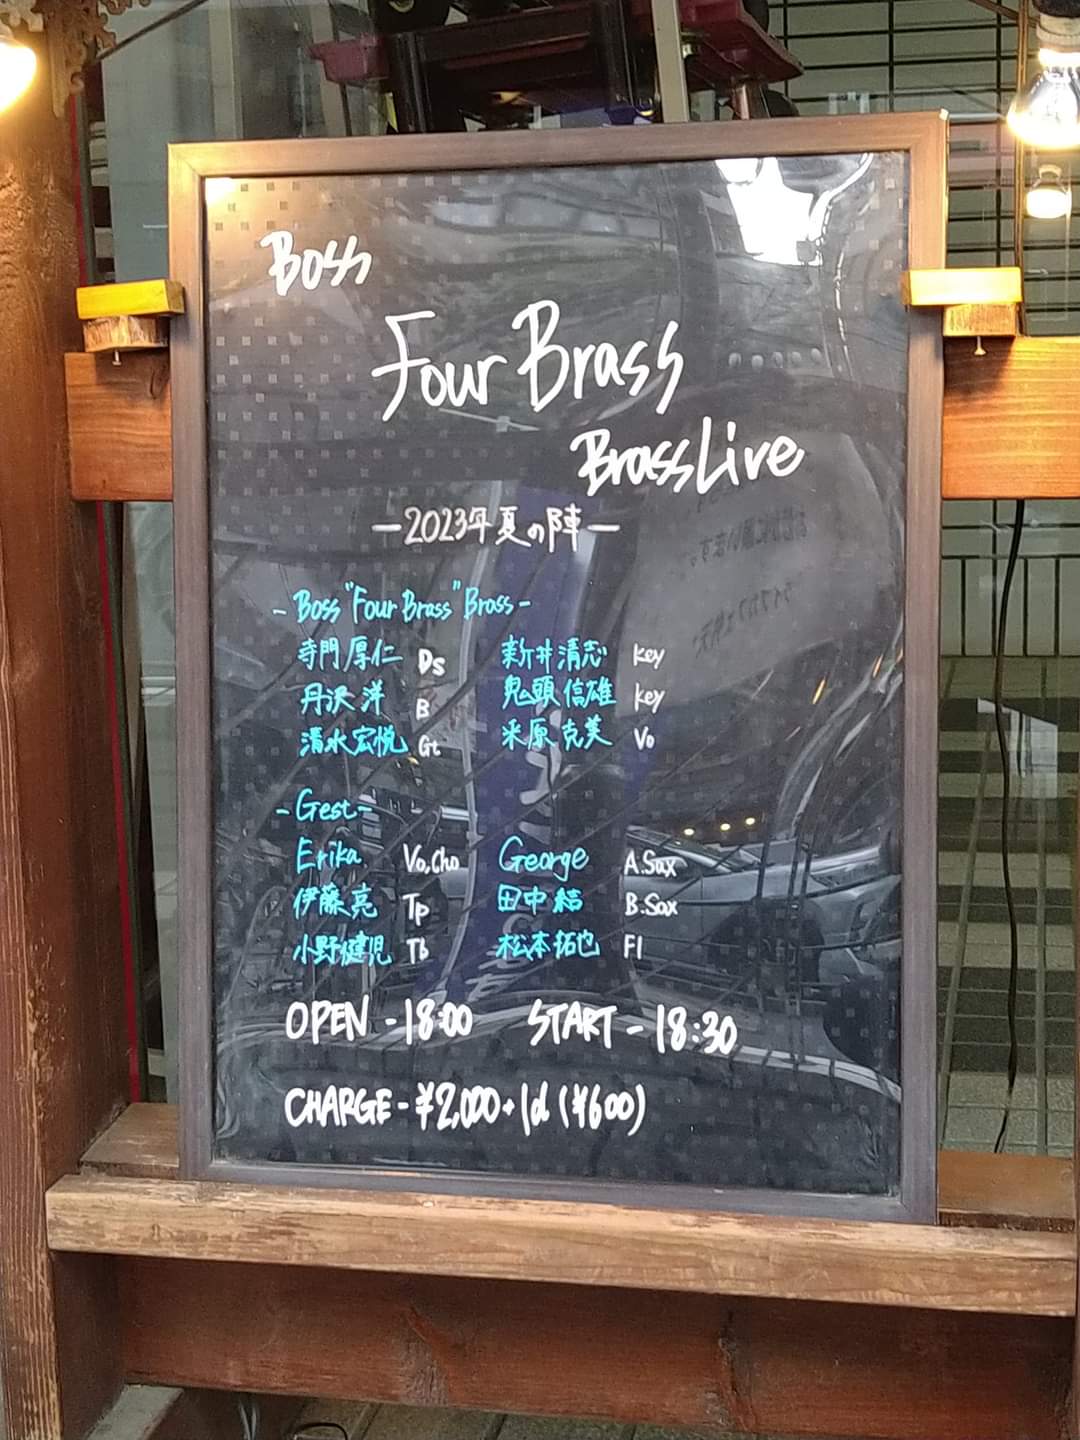 Boss
Four Brass
Brass Live
—2023年 夏の陣—
- Boss "Four Brass" Brass -
寺門 厚仁 Ds 新井 清志 Key
丹沢 洋 B 鬼頭 信雄 Key
清水 宏悦 Gt 米原 克美 Vo
- Gest -
Erika Vo,Cho George A.Sax
伊藤 亮 Tp 田中 結 B.Sax
小野 健児 Tb 松本 拓也 Fl
OPEN - 18:00 START - 18:30
CHARGE - ¥2,000+1d (¥600)